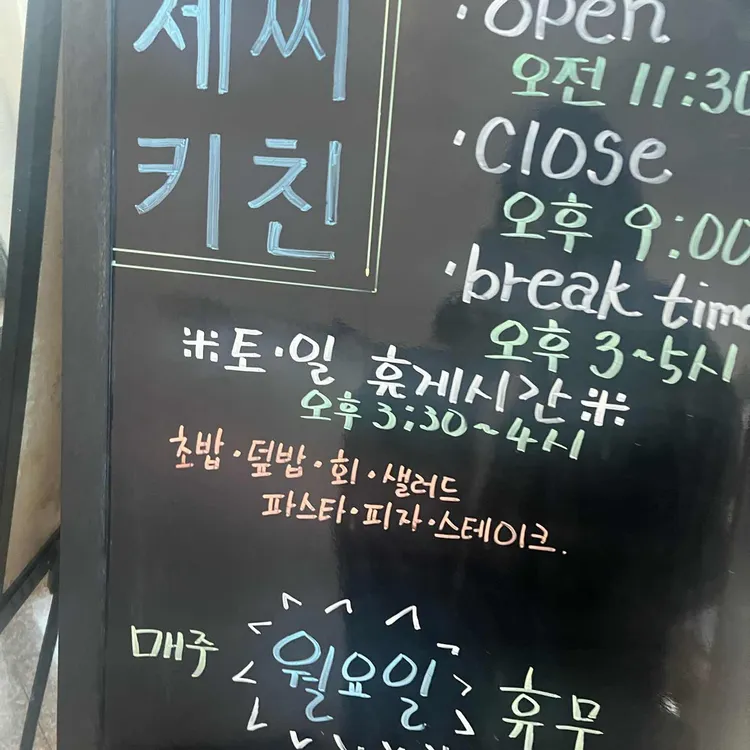 제씨
키친
·open
오전 11:30
·close
오후 9:00
·break time
오후 3~5시
※토·일 휴게시간※
오후 3:30~4시
초밥·덮밥·회·샐러드
파스타·피자·스테이크.
매주 월요일 휴무